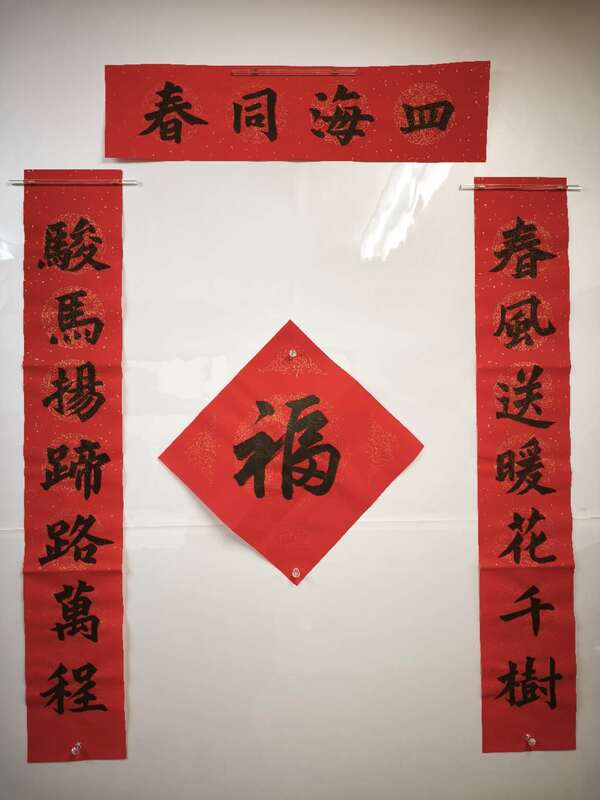 四海同春
春風送暖花千樹
駿馬揚蹄路萬程
福